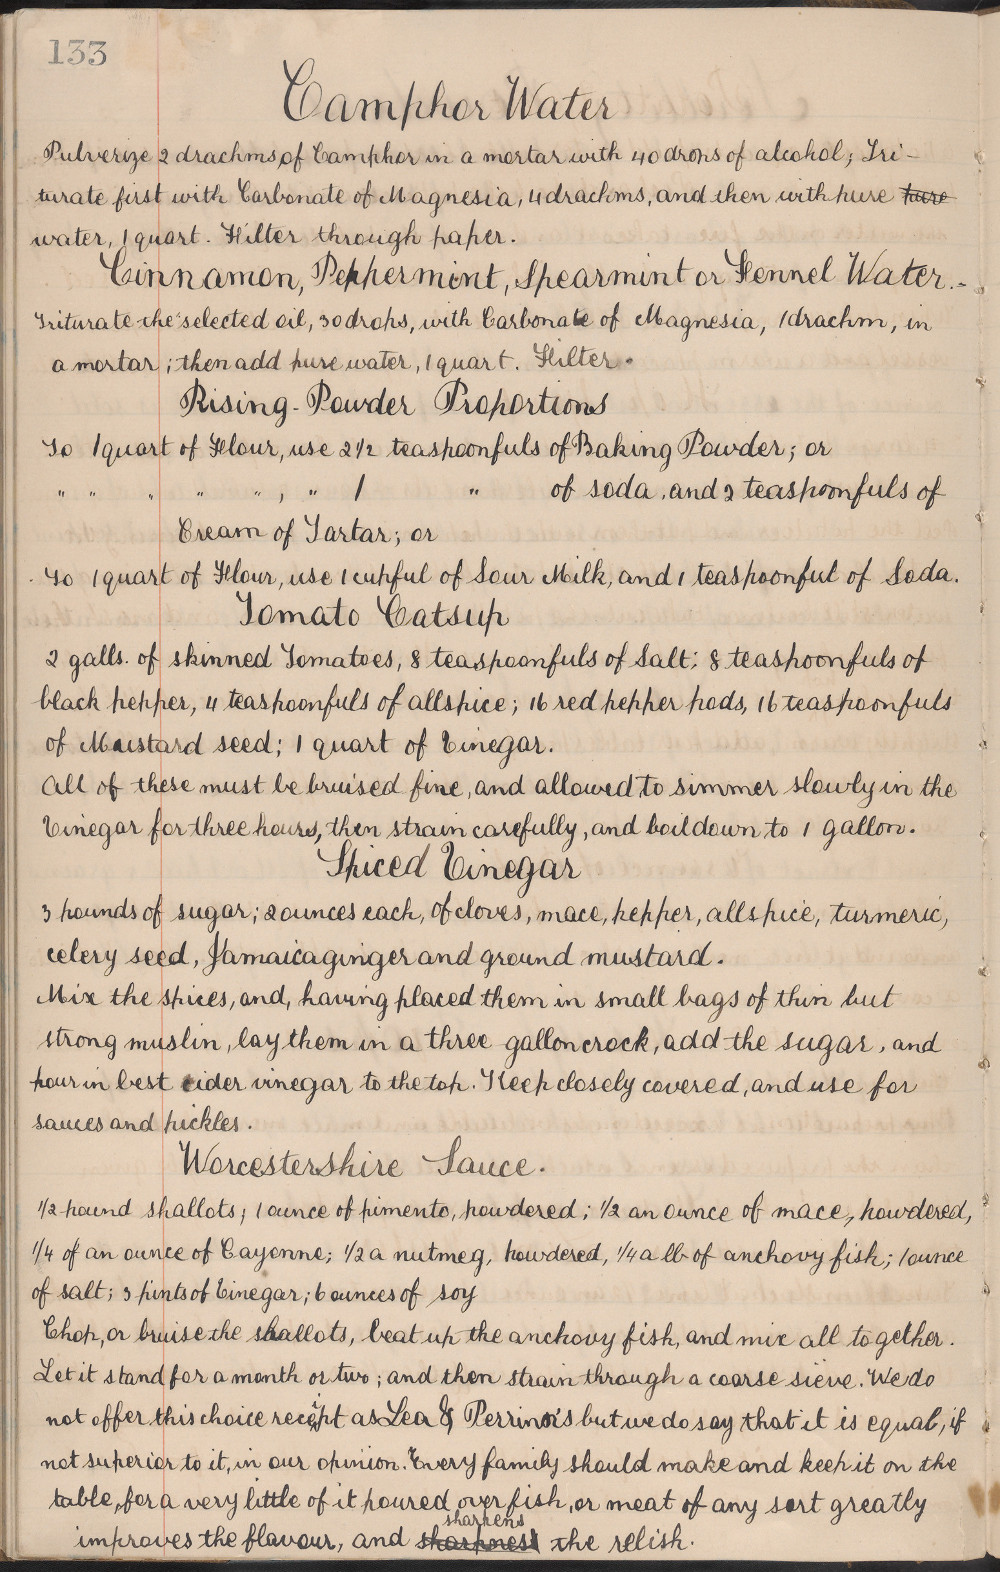 133
Camphor Water
Pulverize 2 drachms, of Camphor in a mortar with 40 drops of alcohol; Tri-
turate first with Carbonate of Magnesia, 4 drachms, and then with pure pure
water, 1 quart. Filter through paper.
Cinnamon, Peppermint, Spearmint or Fennel Water.-
Triturate the selected oil, 30 drops, with Carbonate of Magnesia, 1 drachm, in
a mortar; then add pure water, 1 quart. Filter.
Rising-Powder Proportions
To 1 quart of Flour, use 2 1/2 teaspoonfuls of Baking Powder; or
" " " " " , " 1 " of soda, and 2 teaspoonfuls of
Cream of Tartar; or
To 1 quart of Flour, use 1 cupful of Sour Milk, and 1 teaspoonful of Soda.
Tomato Catsup
2 galls. of skinned Tomatoes, 8 teaspoonfuls of Salt; 8 teaspoonfuls of
black pepper, 4 teaspoonfuls of allspice; 16 red pepper pods, 16 teaspoonfuls
of Mustard seed; 1 quart of Vinegar.
All of these must be bruised fine, and allowed to simmer slowly in the
Vinegar for three hours, then strain carefully, and boil down to 1 gallon.
Spiced Vinegar
3 pounds of sugar; 2 ounces each, of cloves, mace, pepper, allspice, turmeric,
celery seed, Jamaica ginger and ground mustard.
Mix the spices, and, having placed them in small bags of thin but
strong muslin, lay them in a three gallon crock, add the sugar, and
pour in best cider vinegar to the top. Keep closely covered, and use for
sauces and pickles.
Worcestershire Sauce.
1/2 pound shallots; 1 ounce of pimento, powdered; 1/2 an ounce of mace, powdered,
1/4 of an ounce of Cayenne; 1/2 a nutmeg, powdered, 1/4 a lb of anchovy fish; 1 ounce
of salt; 3 pints of Vinegar; 6 ounces of soy
Chop, or bruise the shallots, beat up the anchovy fish, and mix all together.
Let it stand for a month or two; and then strain through a coarse sieve. We do
not offer this choice receipt as Lea & Perrins's but we do say that it is equal, if
not superior to it, in our opinion. Every family should make and keep it on the
table, for a very little of it poured over fish, or meat of any sort greatly
sharpens
improves the flavour, and sharpness the relish.